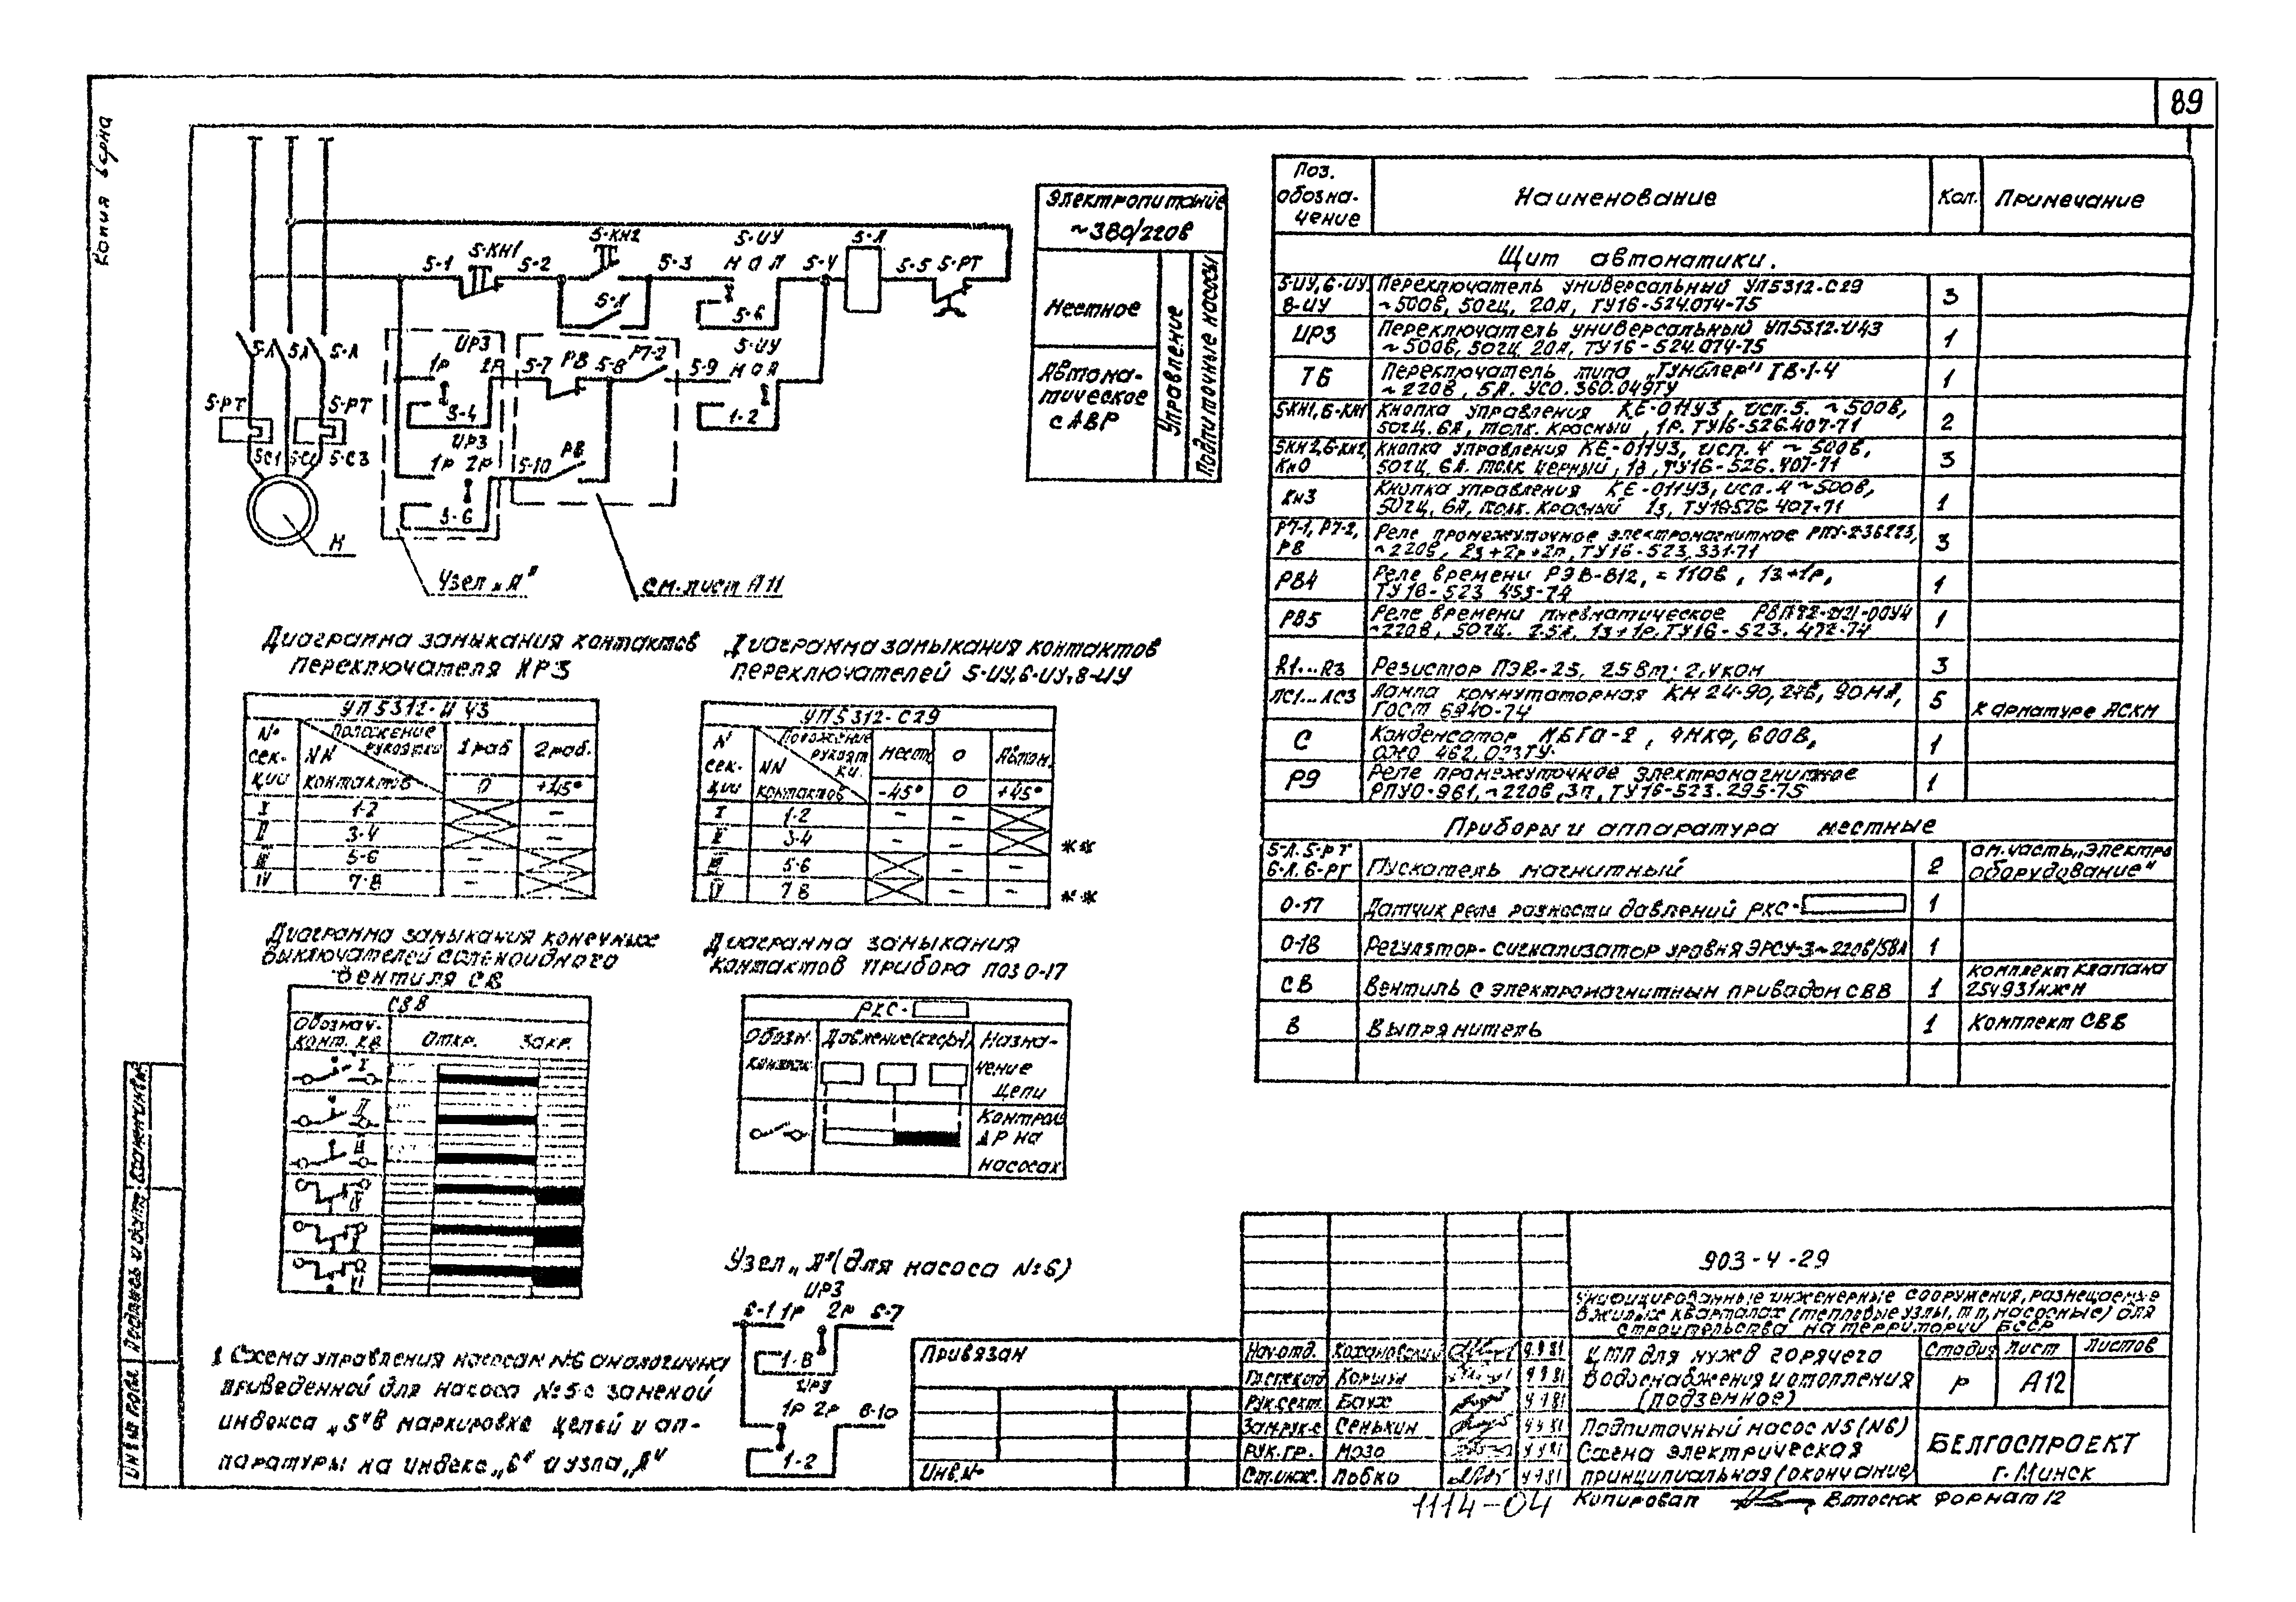 89
Копия верна
5-1 5-КН1 5-2 5-КН2 5-3 5-ИУ 5-4 5-Л 5-5 5-РТ
М О А
5-Л
5-6
5-Л 5-Л 5-Л
ИР3
1Р 2Р 5-7 Р8 5-8 Р7-2 5-9
5-ИУ
М О А
3-4
1-2
5-РТ 5-РТ
5-С3
ИР3
1Р 2Р 5-10 Р8
5-6
М
Узел „А"
см. лист А11
Электропитание
~380/220в
Местное
Автома-
тическое
с АВР
Управление
Подпиточные насосы
Диаграмма замыкания контактов
переключателя ИР3
УП5312-И43
№ сек-ции
Положение рукоятки
NN контактов
1 раб 2 раб.
0 +45°
I 1-2 —
II 3-4 —
III 5-6 —
IV 7-8 —
Диаграмма замыкания контактов
переключателей 5-ИУ, 6-ИУ, 8-ИУ
УП5312-С29
N сек-ции
Положение рукоятки.
NN контактов
мест. 0 Автом.
-45° 0 +45°
I 1-2 — —
II 3-4 — — **
III 5-6 — —
IV 7-8 — — **
Диаграмма замыкания конечных
выключателей соленоидного
вентиля СВ
СВВ
Обознач. конт. КВ
Откр. Закр.
I
II
III
IV
V
VI
Диаграмма замыкания
контактов прибора поз 0-17
РКС-
Обозн. контак.
Назна-
чение
цепи
Контроль
ΔР на
насосах
Узел „А" (для насоса №6)
ИР3
6-1 1Р 2Р 6-7
ИР3
1Р 2Р
1-2
1 Схема управления насосам №6 аналогична
приведенной для насоса №5 с заменой
индекса „5" в маркировке цепей и ап-
паратуры на индекс „6" и узла „А"
Поз. обозна-чение
Наименование
Кол. Примечание
Щит автоматики.
5-ИУ, 6-ИУ, 8-ИУ Переключатель универсальный УП5312-С29
~500в, 50гц, 20А, ТУ16-524.074-75 3
ИР3 Переключатель универсальный УП5312-И43
~500в, 50гц, 20А, ТУ16-524.074-75 1
ТБ Переключатель типа „Тумблер" ТВ-1-4
~220в, 5А. УСО.360.049ТУ 1
5-КН1, 6-КН1 Кнопка управления КЕ-011У3, исп.5. ~500в,
50гц, 6А, толк. красный, 1Р. ТУ16-526.407-71 2
5КН2, 6-КН2, КнО Кнопка управления КЕ-011У3, исп. 4 ~500в,
50гц, 6А. толк черный, 1з, ТУ16-526.407-71 3
Кн3 Кнопка управления КЕ-011У3, исп. 4 ~500в,
50гц, 6А, толк. красный 1з, ТУ16-526.407-71 1
Р7-1, Р7-2, Р8 Реле промежуточное электромагнитное
~220в, 2з+2р+2п, ТУ16-523.331-71 3
РВ4 Реле времени РЭВ-812, =110в, 1з+1р,
ТУ16-523 1
РВ5 Реле времени пневматическое
~220в, 50гц. 2.5А, 1з+1р. ТУ16-523.472-74 1
R1...R3 Резистор ПЭВ-25, 25Вт; 2,4ком 3
ЛС1...ЛС3 Лампа коммутаторная КМ 24-90, 24в, 90мА,
ГОСТ 6940-74 5 К арматуре АСКМ
С Конденсатор МБГО-2, 4МКФ, 600в,
ОЖО 462.023ТУ. 1
Р9 Реле промежуточное электромагнитное
РПУ0-961, ~220в, 3п, ТУ16-523.295-75 1
Приборы и аппаратура местные
5-Л. 5-РТ
6-Л. 6-РТ Пускатель магнитный 2 см. часть „Электро
оборудование"
0-17 Датчик реле разности давлений РКС- 1
0-18 Регулятор-сигнализатор уровня ЭРСУ-3 1
СВ Вентиль с электромагнитным приводом СВВ 1 Комплект клапана
В Выпрямитель 1 Комплект СВВ
903-4-29
Унифицированные инженерные сооружения, размещаемые
в жилых кварталах (тепловые узлы, тп, насосные) для
строительства на территории БССР
ЦТП для нужд горячего
водоснабжения и отопления
(подземное)
Стадия Лист Листов
Р А12
Подпиточный насос N5 (N6)
Схема электрическая
принципиальная (окончание)
БЕЛГОСПРОЕКТ
г. Минск
Привязан
Инв. №
Нач. отд. Кохановский
Рук. сект. Баух
Зам. рук. с Сенькин
Рук. гр. Мозо
Ст. инж. Лобко
Инв № подл. Подпись и дата Взам. инв. №
1114-04 Копировал Формат 12